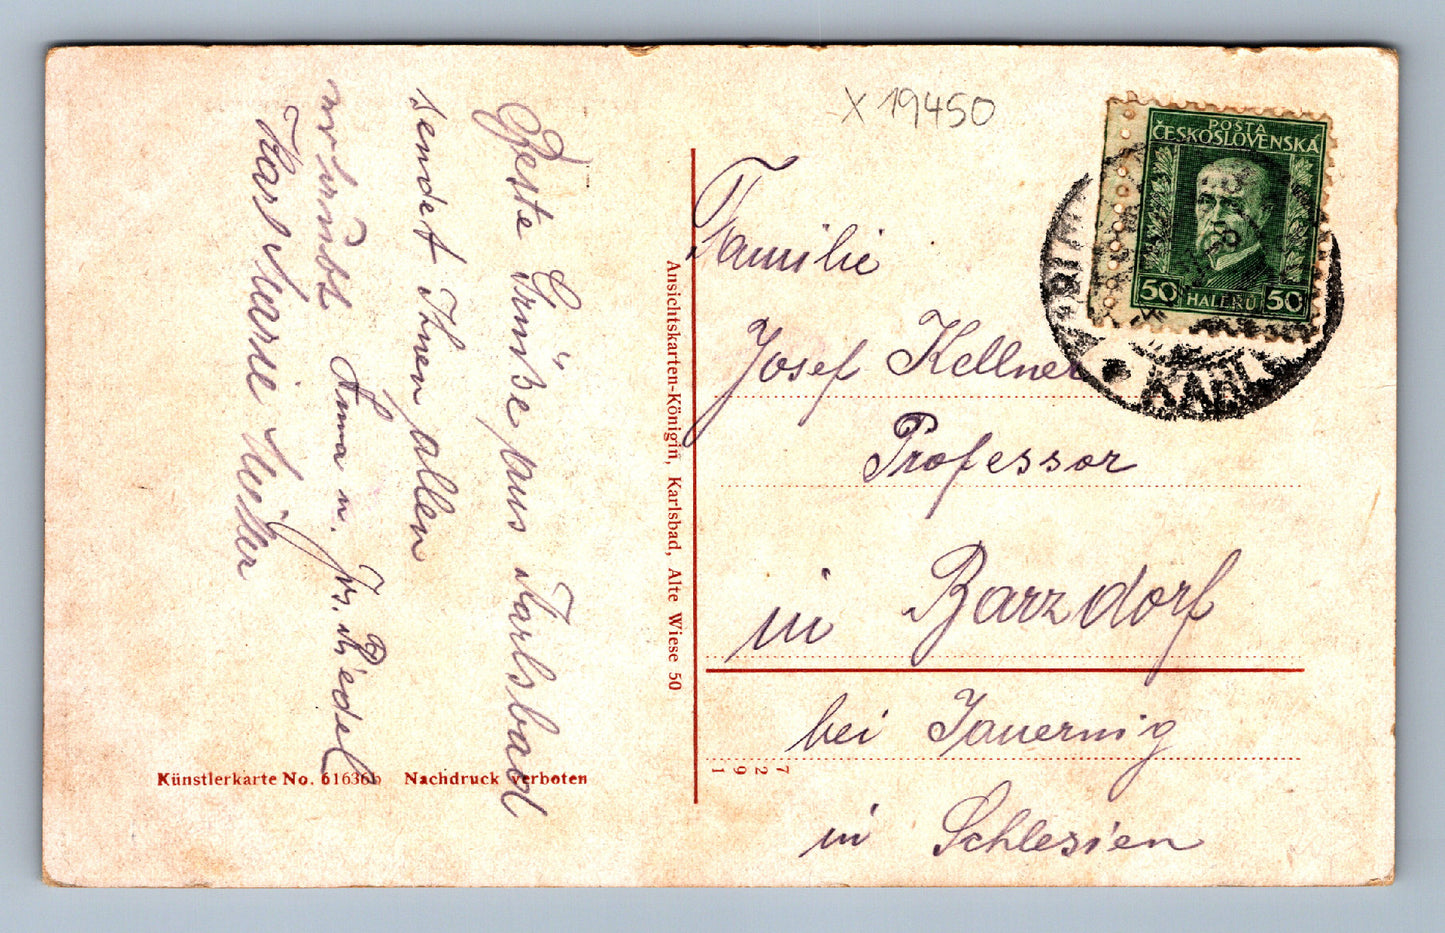 X 19450
POŠTA
ČESKOSLOVENSKÁ
50 HALÉŘŮ 50
Beste Grüße aus Karlsbad
sendet Ihnen allen
Anna u. Jos. Riedel
Karl
Ansichtskarten-Königin, Karlsbad, Alte Wiese 50
Familie
Josef Kellner
Professor
in Barzdorf
bei Jauernig
in Schlesien
1927
Künstlerkarte No. 61636b Nachdruck verboten